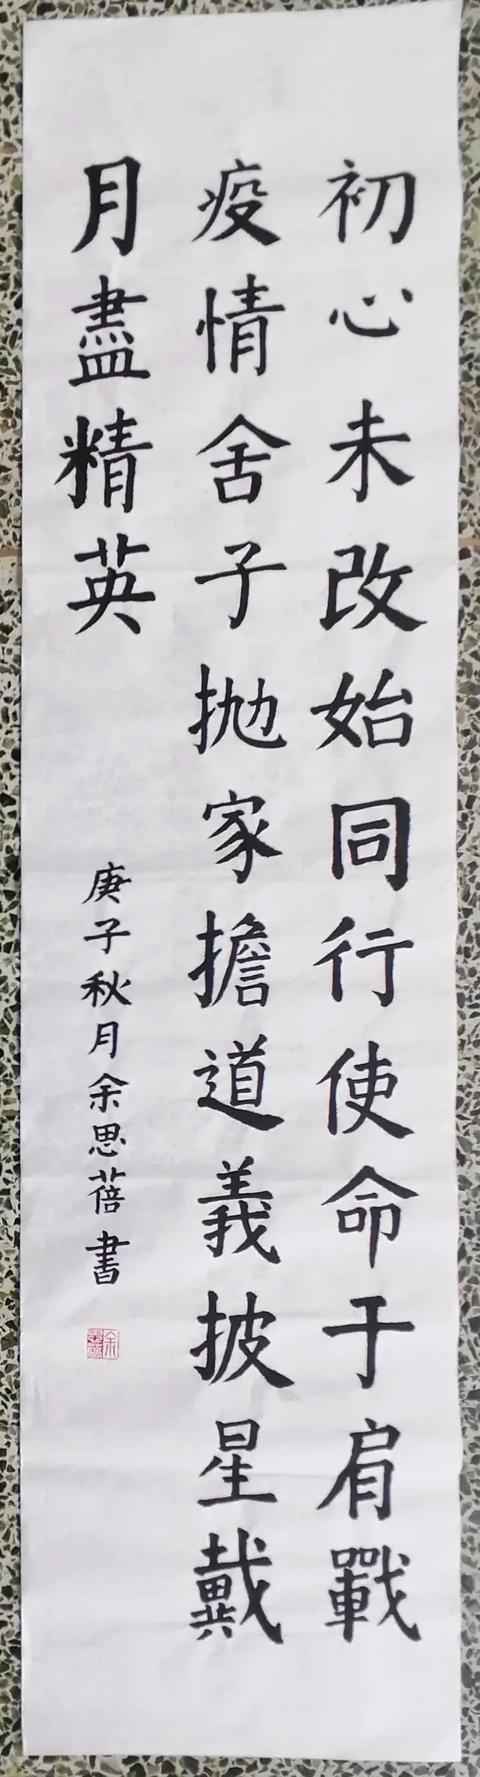 初心未改始同行使命于肩戰
疫情舍子拋家擔道義披星戴
月盡精英
庚子秋月余思蓓書